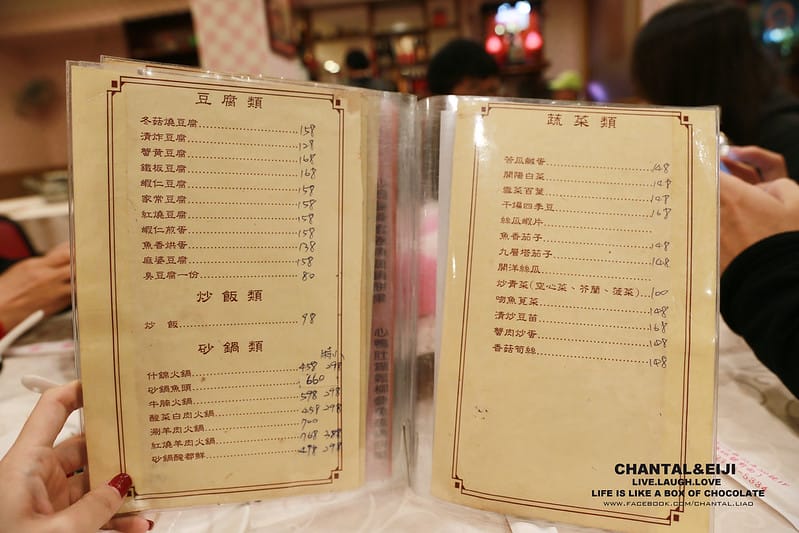 豆腐類
冬菇燒豆腐 158
清炸豆腐 128
蟹黃豆腐 168
鐵板豆腐 168
蝦仁豆腐 158
家常豆腐 158
紅燒豆腐 158
蝦仁煎蛋 158
魚香烘蛋 138
麻婆豆腐 158
臭豆腐一份 80
炒飯類
炒 飯 98
砂鍋類
什錦火鍋 458 298
砂鍋魚頭 660
牛腩火鍋 598 298
酸菜白肉火鍋 458 298
涮羊肉火鍋 700
紅燒羊肉火鍋 768 388
砂鍋醃都鮮 498 298
蔬菜類
苦瓜鹹蛋 148
開陽白菜 148
雪菜百葉 148
干煸四季豆 168
絲瓜蝦片
魚香茄子 148
九層塔茄子 148
開洋絲瓜
炒青菜(空心菜、芥蘭、菠菜) 100
吻魚莧菜 148
清炒豆苗 168
蟹肉炒蛋 148
香菇筍絲 148
CHANTAL&EIJI
LIVE.LAUGH.LOVE
LIFE IS LIKE A BOX OF CHOCOLATE
WWW.FACEBOOK.COM/CHANTAL.LIAO